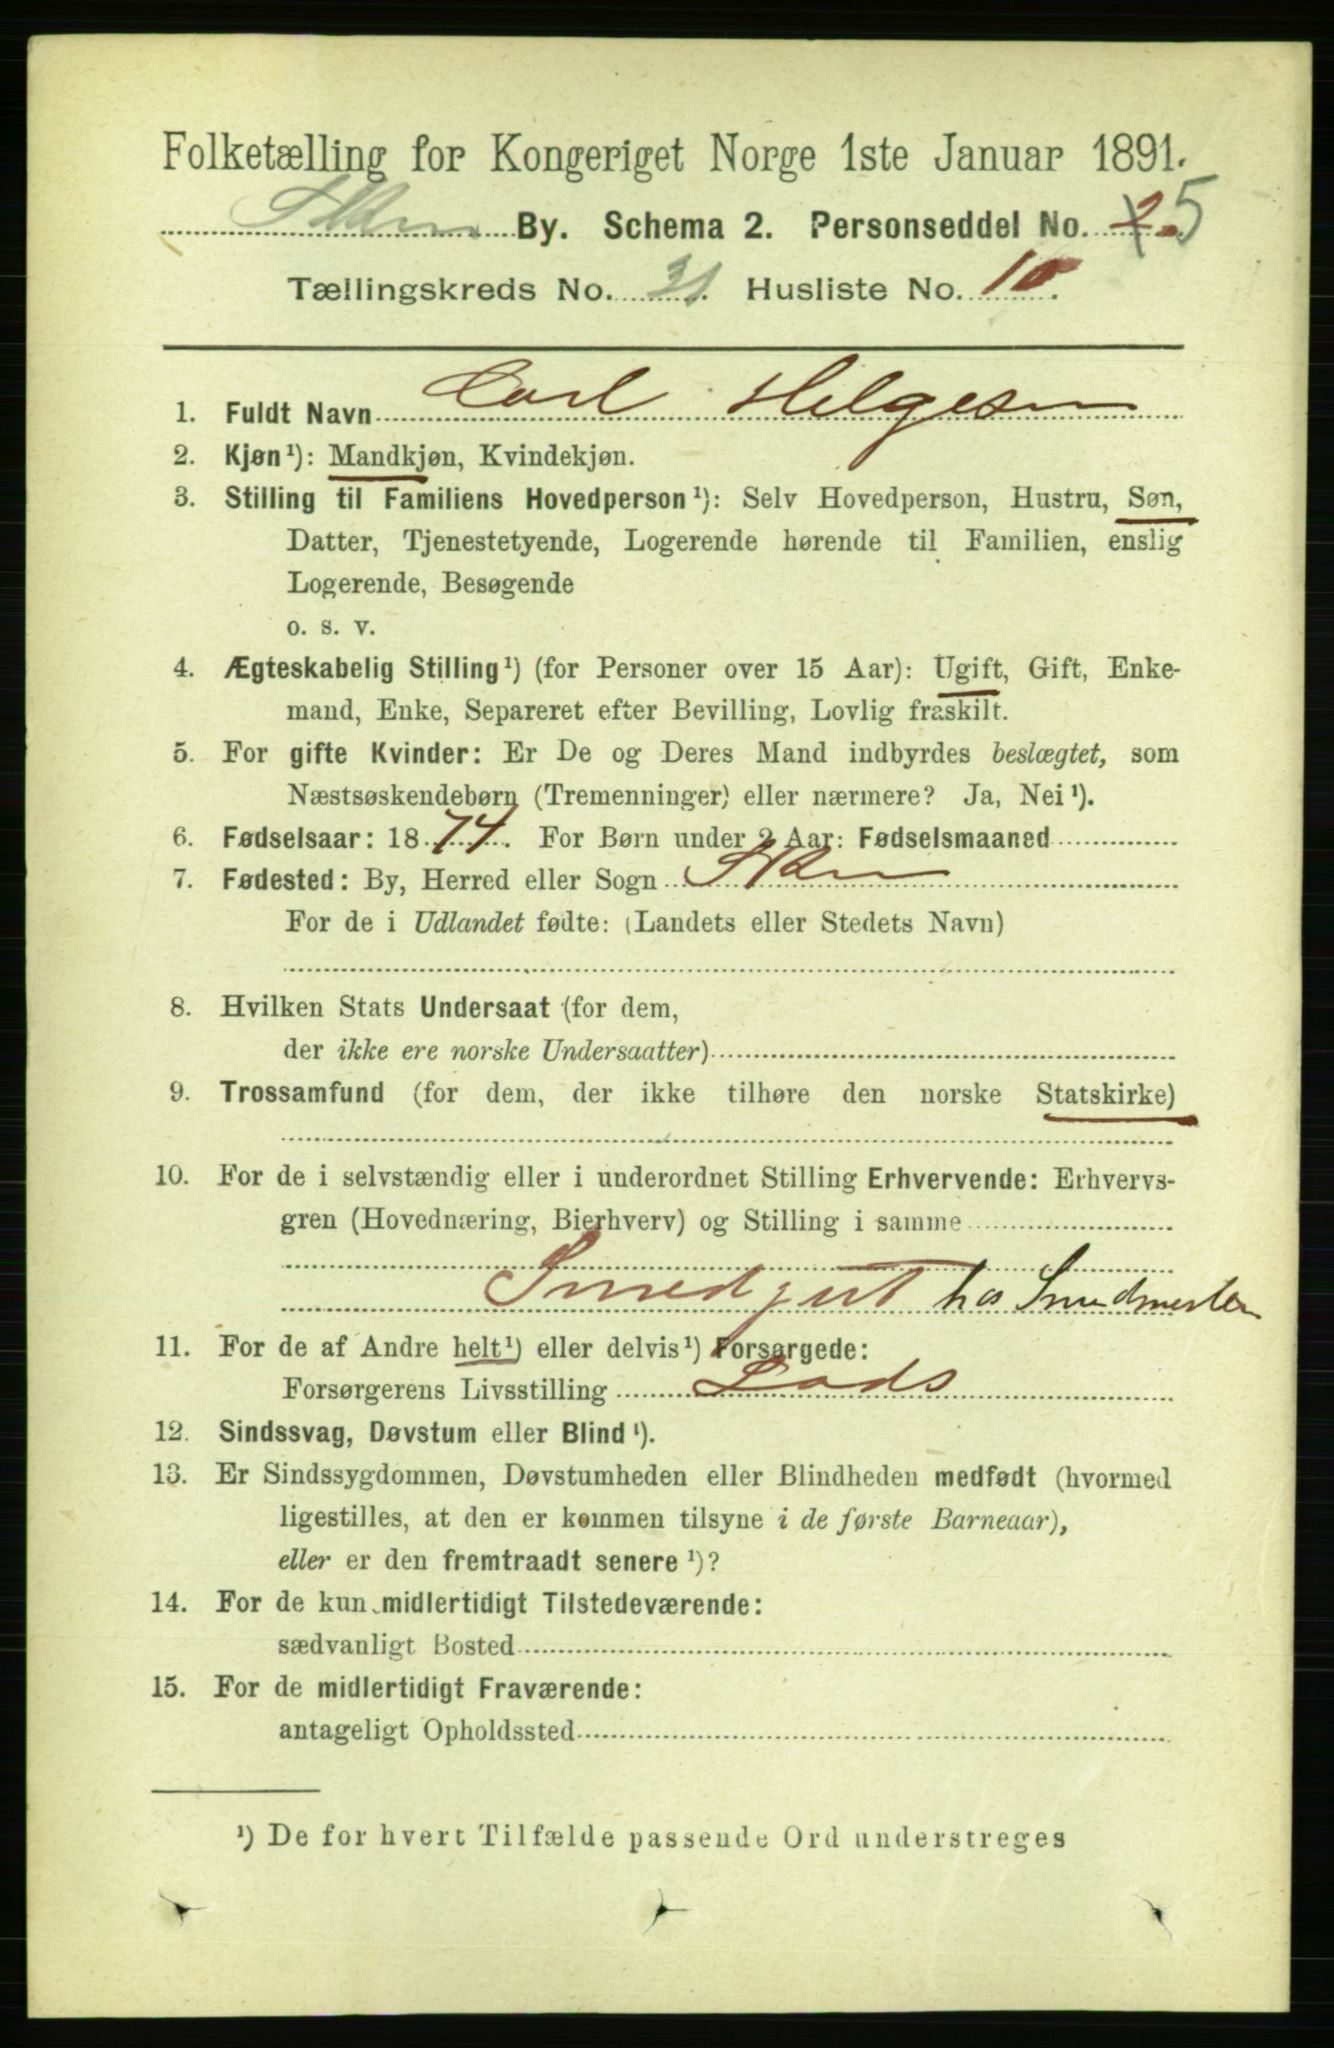 Folketælling for Kongeriget Norge 1ste Januar 1891.
Skien By. Schema 2. Personseddel No. 2. 5
Tællingskreds No. 31. Husliste No. 10.
1. Fuldt Navn Carl Helgesen
2. Kjøn¹): Mandkjøn, Kvindekjøn.
3. Stilling til Familiens Hovedperson¹): Selv Hovedperson, Hustru, Søn,
Datter, Tjenestetyende, Logerende hørende til Familien, enslig
Logerende, Besøgende
o. s. v.
4. Ægteskabelig Stilling¹) (for Personer over 15 Aar): Ugift, Gift, Enke-
mand, Enke, Separeret efter Bevilling, Lovlig fraskilt.
5. For gifte Kvinder: Er De og Deres Mand indbyrdes beslægtet, som
Næstsøskendebørn (Tremenninger) eller nærmere? Ja, Nei¹).
6. Fødselsaar: 1874. For Børn under 2 Aar: Fødselsmaaned
7. Fødested: By, Herred eller Sogn Skien
For de i Udlandet fødte: (Landets eller Stedets Navn)
8. Hvilken Stats Undersaat (for dem,
der ikke ere norske Undersaatter)
9. Trossamfund (for dem, der ikke tilhøre den norske Statskirke)
10. For de i selvstændig eller i underordnet Stilling Erhvervende: Erhvervs-
gren (Hovednæring, Bierhverv) og Stilling i samme
Smedgut hos Smedmester
11. For de af Andre helt¹) eller delvis¹) Forsørgede:
Forsørgerens Livsstilling Lods
12. Sindssvag, Døvstum eller Blind¹).
13. Er Sindssygdommen, Døvstumheden eller Blindheden medfødt (hvormed
ligestilles, at den er kommen tilsyne i de første Barneaar),
eller er den fremtraadt senere¹)?
14. For de kun midlertidigt Tilstedeværende:
sædvanligt Bosted
15. For de midlertidigt Fraværende:
antageligt Opholdssted
¹) De for hvert Tilfælde passende Ord understreges